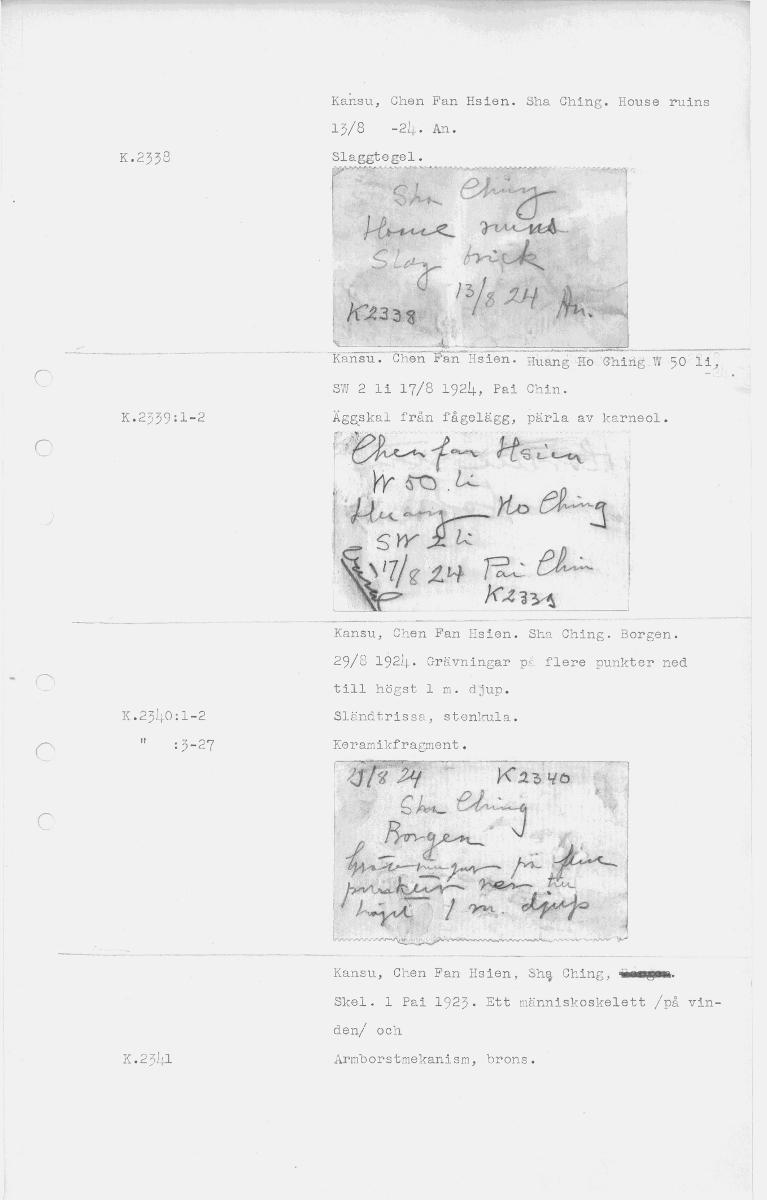 Kansu, Chen Fan Hsien. Sha Ching. House ruins
13/8 -24. An.
K.2338 Slaggtegel.
Sha Ching
House ruins
Slag brick
13/8 24 An.
K2338
Kansu. Chen Fan Hsien. Huang Ho Ching W 50 li,
SW 2 li 17/8 1924, Pai Chin.
K.2339:1-2 Äggskal från fågelägg, pärla av karneol.
Chen fan Hsien
W 50 li
Huang Ho Ching
SW 2 li
17/8 24 Pai Chin
K2339
Kansu, Chen Fan Hsien. Sha Ching. Borgen.
29/8 1924. Grävningar på flere punkter ned
till högst 1 m. djup.
K.2340:1-2 Sländtrissa, stenkula.
" :3-27 Keramikfragment.
29/8 24 K2340
Sha Ching
Borgen
Grävningar på flere
punkter ner till
högst 1 m. djup
Kansu, Chen Fan Hsien, Sha Ching,
Skel. 1 Pai 1923. Ett människoskelett /på vin-
den/ och
K.2341 Armborstmekanism, brons.